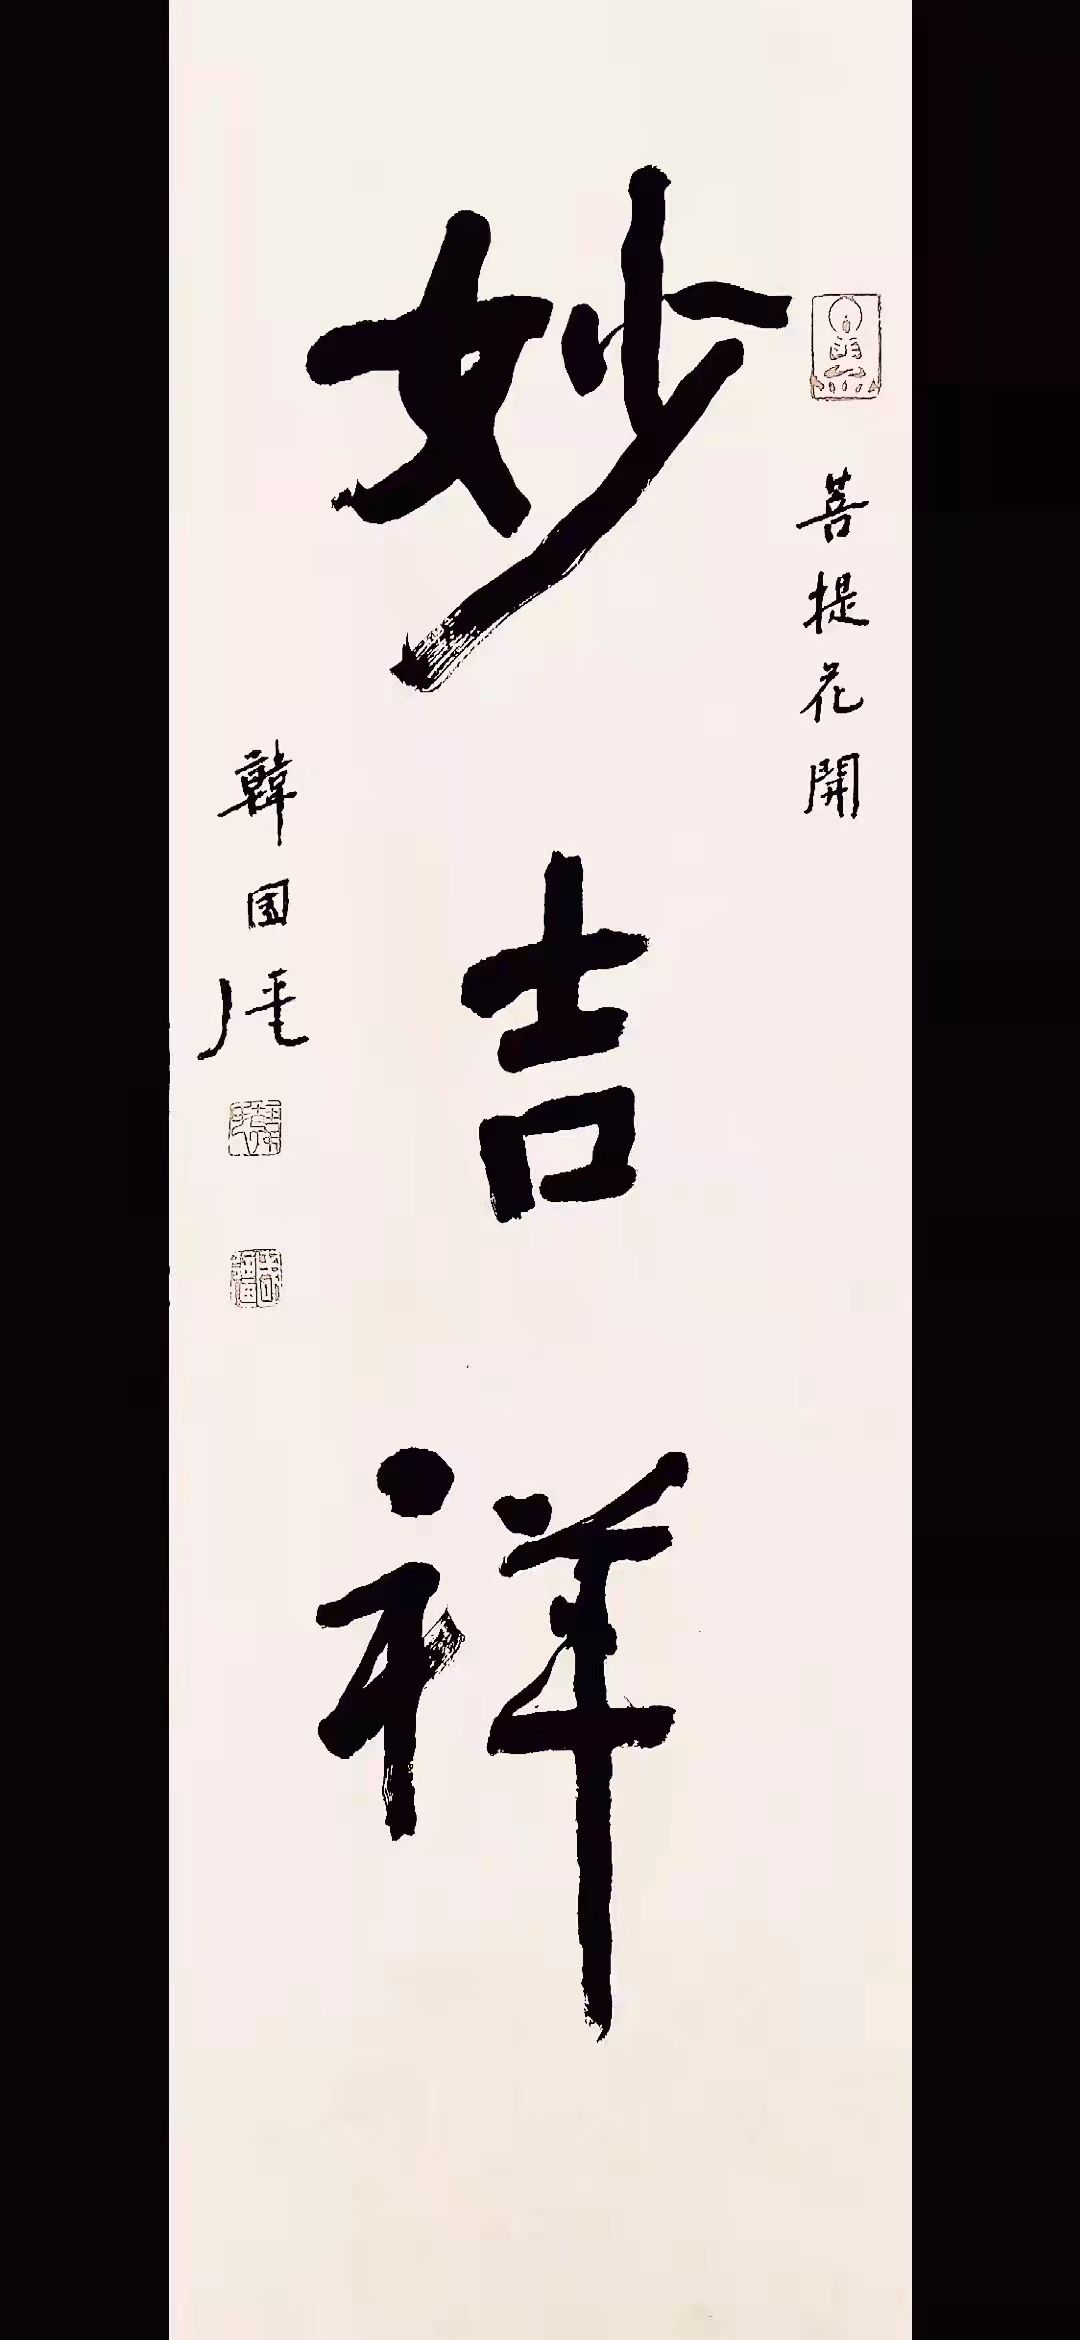 菩提花開
妙吉祥
韓国